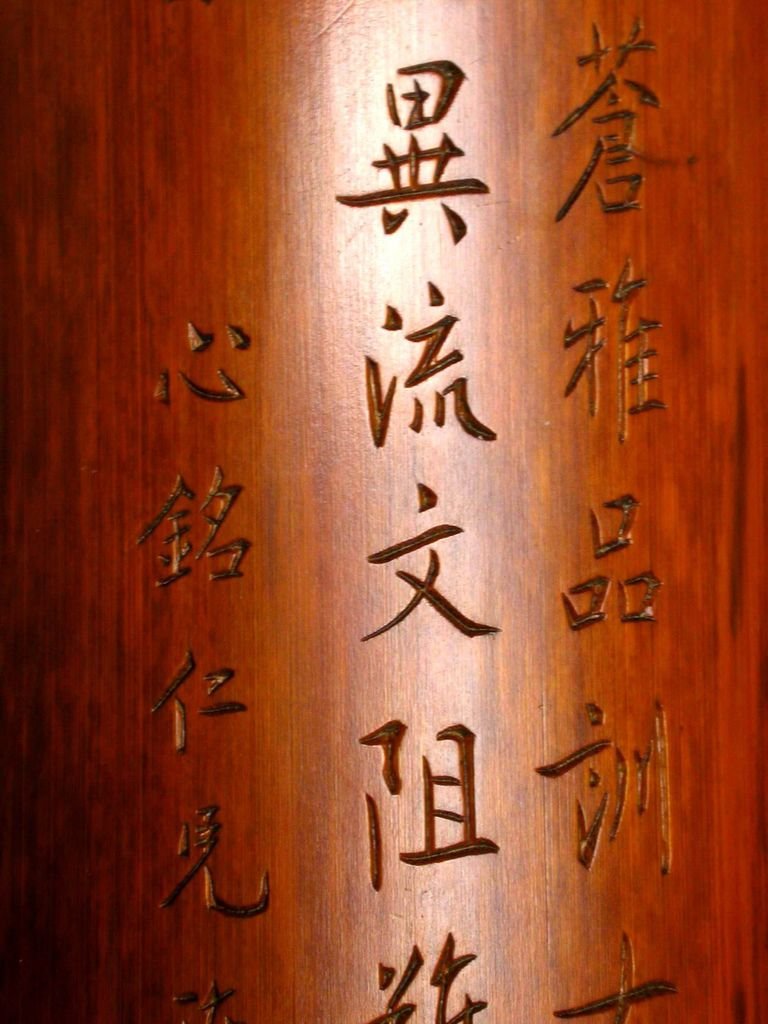 蒼雅品訓古
異流文阻雖
心銘仁兄法